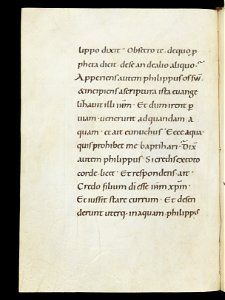 lippo dixit · Obsecro te · de quo p
pheta dicit · de se an de alio aliquo ·
Aperiens autem philippus os suū
& incipiens a scriptura ista euange
lizauit illi iħm · Et dum irent p
uiam · uenerunt ad quandam a
quam · et ait eunuchus · Ecce aqua ·
quis prohibet me baptizari · Dix̄
autem philippus · Si credis ex toto
corde · licet · Et respondens ait ·
Credo filium di esse iħm xp̄m ·
Et iussit stare currum · Et descen
derunt uterq; in aquam · philippus